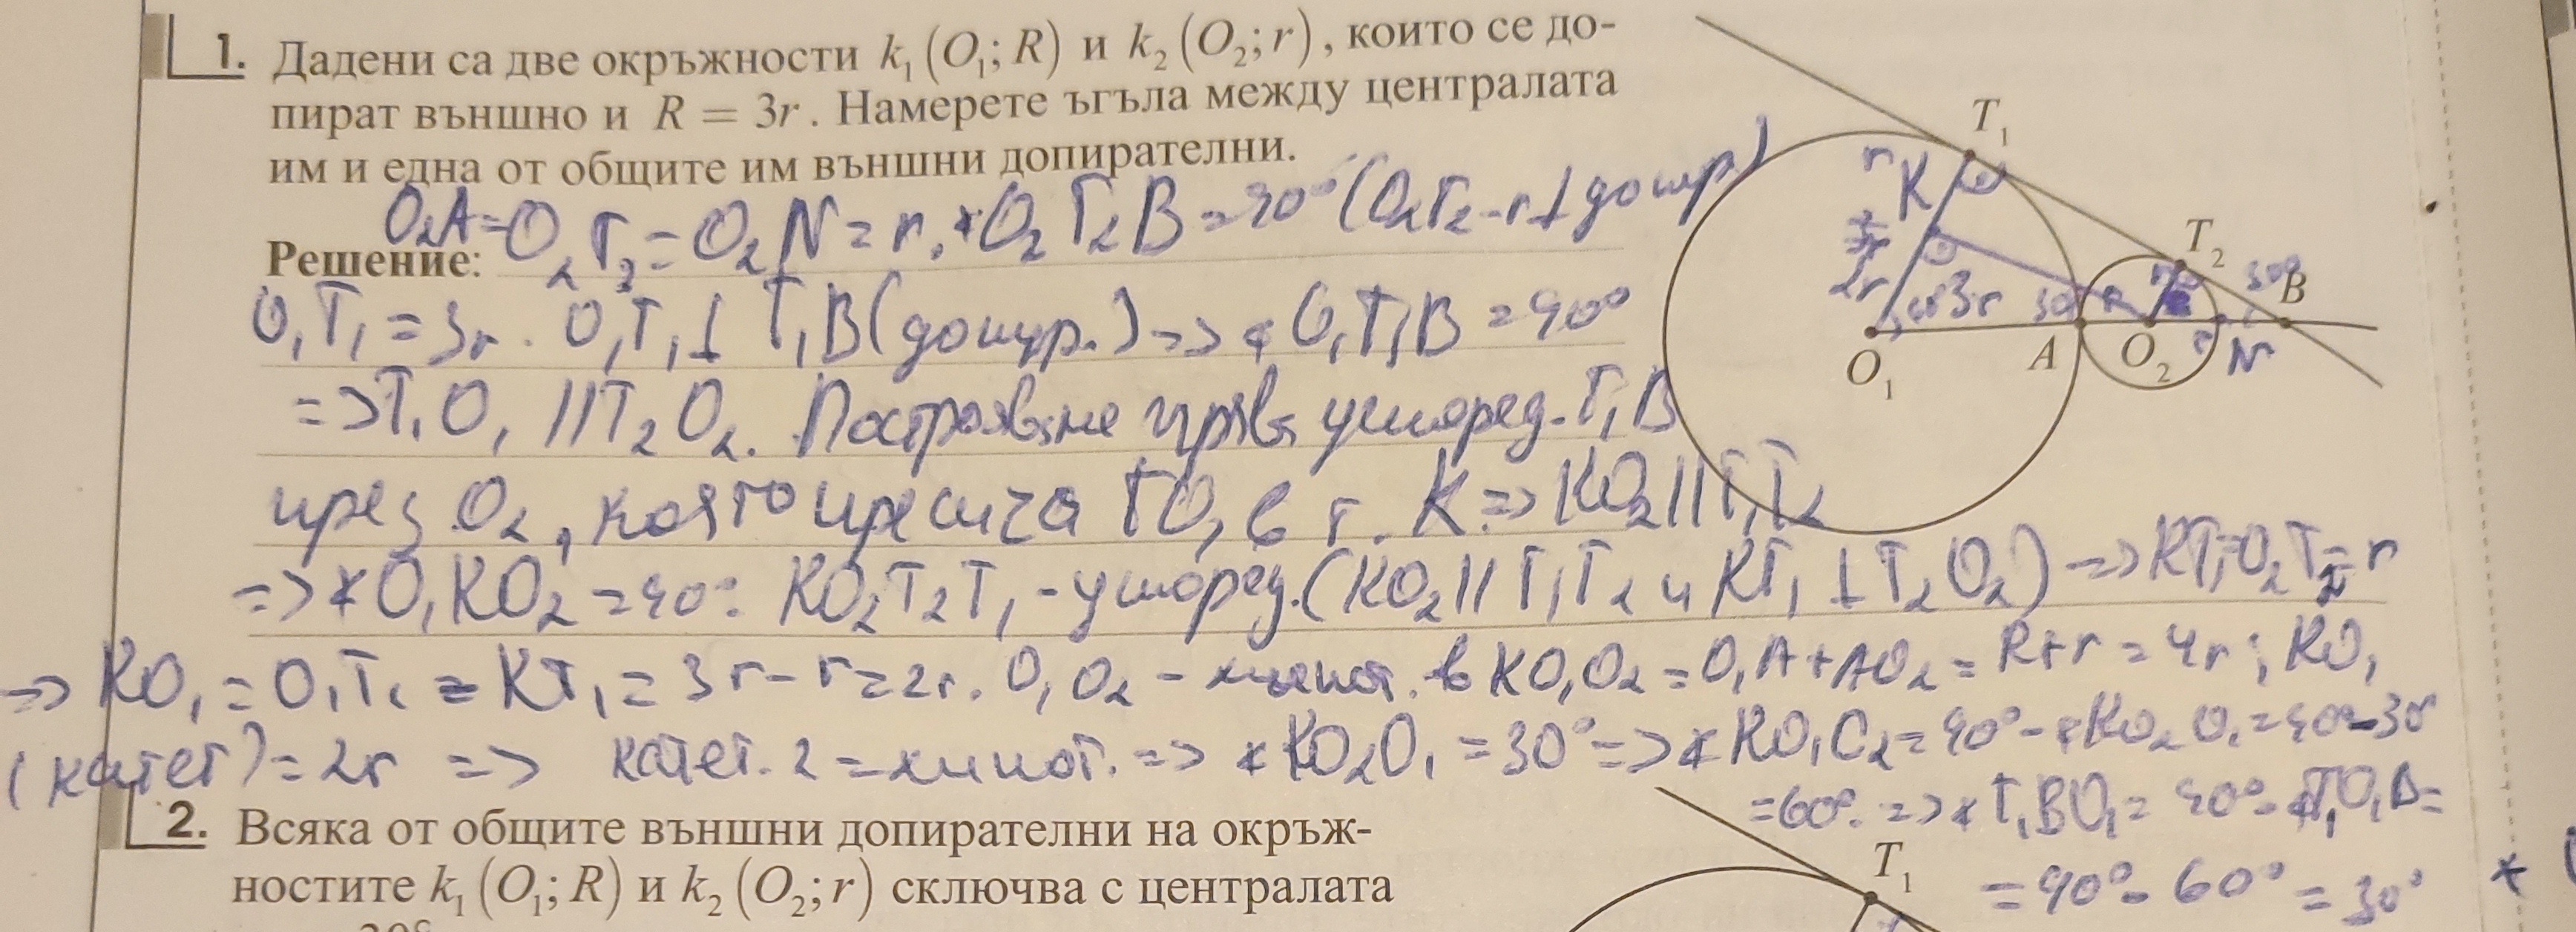 1. Дадени са две окръжности k₁(O₁; R) и k₂(O₂; r), които се до-
пират външно и R = 3r. Намерете ъгъла между централата
им и една от общите им външни допирателни.
O₂A = O₂T₂ = O₂N = r. ∢O₂T₂B = 90° (O₂T₂ - r ⊥ допир.)
Решение:
O₁T₁ = 3r. O₁T₁ ⊥ T₁B (допир.) => ∢O₁T₁B = 90°
=> T₁O₁ || T₂O₂. Построяваме права успоред. T₁B
през O₂, която пресича TO₁ в т. K => KO₂ || T₁T₂
=> ∢O₁KO₂ = 90°. KO₂T₂T₁ - успоред. (KO₂ || T₁T₂ и KT₁ ⊥ T₂O₂) => KT₁ = O₂T₂ = r
=> KO₁ = O₁T₁ - KT₁ = 3r - r = 2r. O₁O₂ - хипот. в KO₁O₂ = O₁A + AO₂ = R + r = 4r; KO₁
(катет) = 2r => катет. 2 = хипот. => ∢KO₂O₁ = 30° => ∢KO₁O₂ = 90° - ∢KO₂O₁ = 90° - 30°
= 60°. => ∢T₁BO₁ = 90° - ∢T₁O₁B =
= 90° - 60° = 30°
T₁
r
K
2r
3r
30
T₂
30°
B
O₁
A
O₂
r
N
2. Всяка от общите външни допирателни на окръж-
ностите k₁(O₁; R) и k₂(O₂; r) сключва с централата
T₁